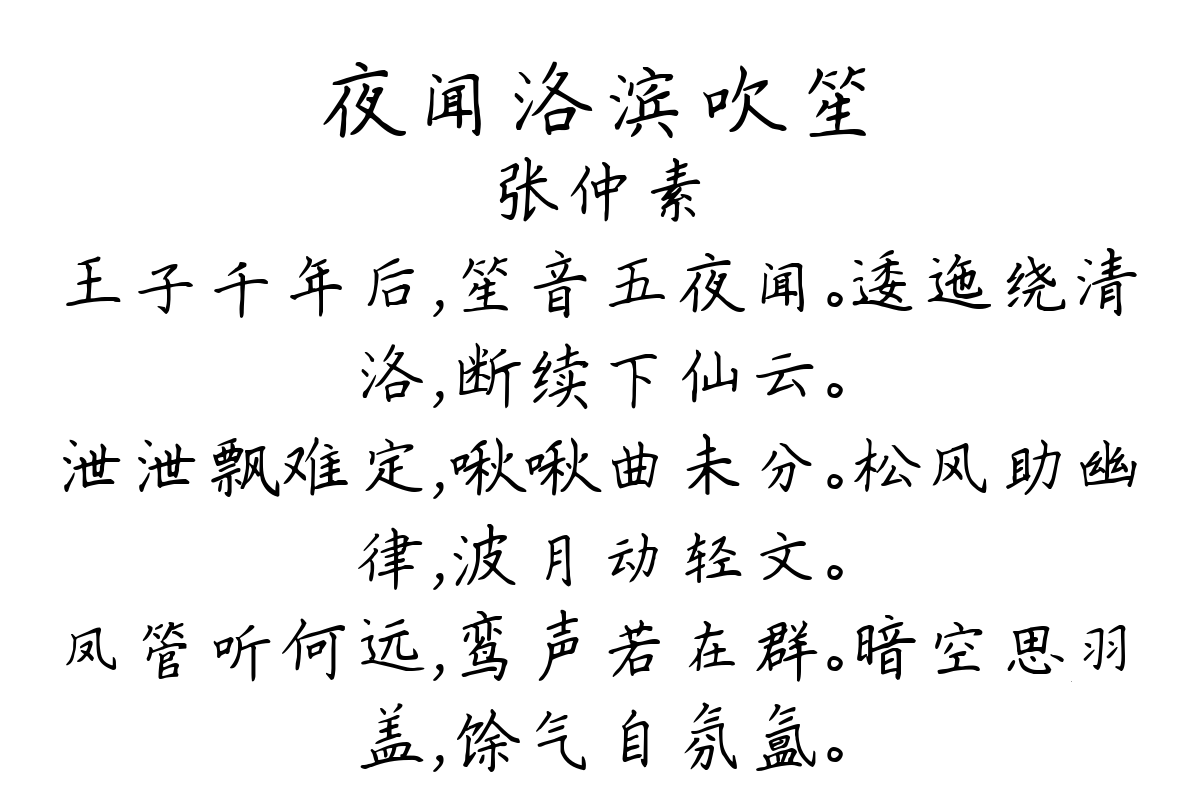 夜闻洛滨吹笙
张仲素
王子千年后,笙音五夜闻。逶迤绕清
洛,断续下仙云。
泄泄飘难定,啾啾曲未分。松风助幽
律,波月动轻文。
凤管听何远,鸾声若在群。暗空思羽
盖,馀气自氛氲。